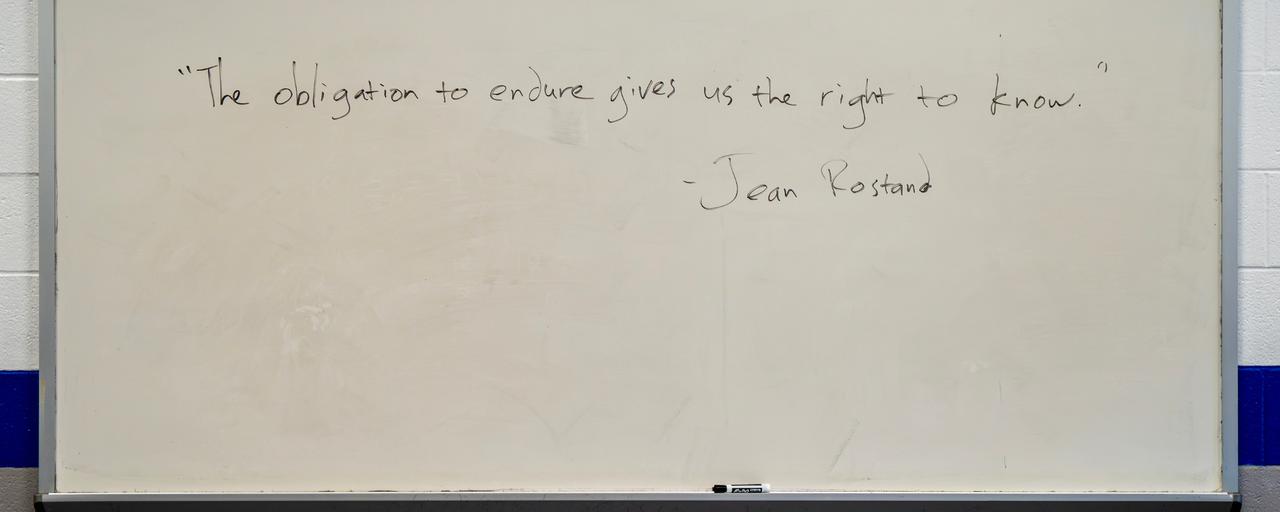 "The obligation to endure gives us the right to know."
-Jean Rostand